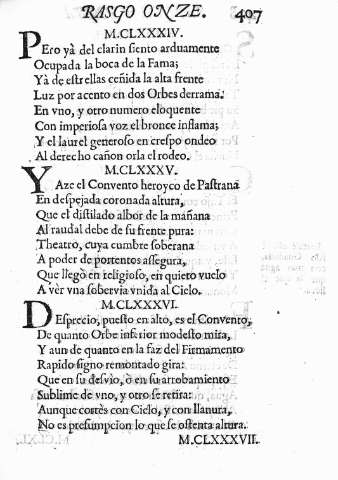 RASGO ONZE. 407
M.CLXXXIV.
PEro yà del clarin siento arduamente
Ocupada la boca de la Fama;
Yà de estrellas ceñida la alta frente
Luz por acento en dos Orbes derrama.
En vno, y otro numero eloquente
Con imperiosa voz el bronce inflama;
Y el laurel generoso en crespo ondeo
Al derecho cañon orla el rodeo.
M.CLXXXV.
YAze el Convento heroyco de Pastrana
En despejada coronada altura,
Que el distilado albor de la mañana
Al raudal debe de su frente pura:
Theatro, cuya cumbre soberana
A poder de portentos assegura,
Que llegò en religioso, en quieto vuelo
A vèr vna sobervia vnida al Cielo.
M.CLXXXVI.
DEsprecio, puesto en alto, es el Convento,
De quanto Orbe inferior modesto mira,
Y aun de quanto en la faz del Firmamento
Rapido signo remontado gira:
Que en su desvio, ò en su arrobamiento
Sublime de vno, y otro se retira:
Aunque cortès con Cielo, y con llanura,
No es presumpcion lo que se ostenta altura.
M.CLXXXVII.